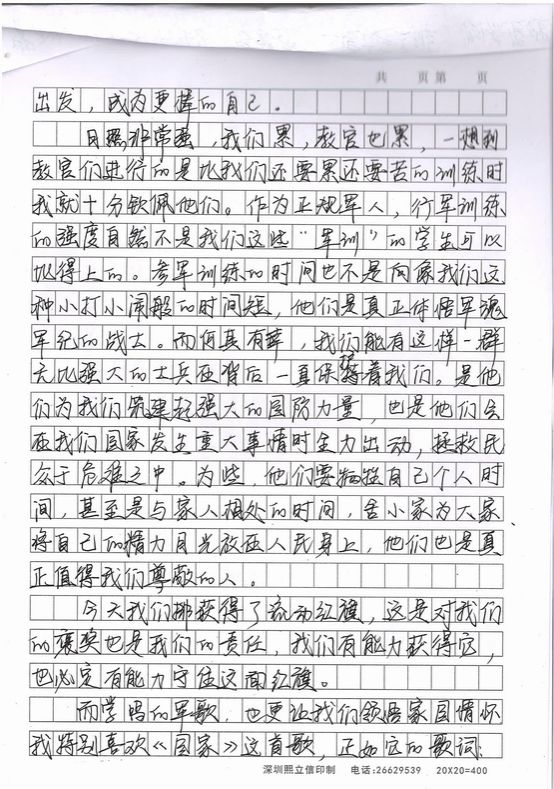 共 页 第 页
出发，成为更棒的自己。
日照非常强，我们累，教官也累，一想到
教官们进行的是比我们还要累还要苦的训练时
我就十分钦佩他们。作为正规军人，行军训练
的强度自然不是我们这些“军训”的学生可以
比得上的。参军训练的时间也不是向像我们这
种小打小闹般的时间短，他们是真正体悟军魂
军纪的战士。而何其有幸，我们能有这样一群
无比强大的士兵在背后一直保护着我们。是他
们为我们筑建起强大的国防力量，也是他们会
在我们国家发生重大事情时全力出动，拯救民
众于危难之中。为些，他们要牺牲自己个人时
间，甚至是与家人相处的时间，舍小家为大家，
将自己的精力目光放在人民身上，他们也是真
正值得我们尊敬的人。
今天我们排获得了流动红旗，这是对我们
的褒奖也是我们的责任，我们有能力获得它，
也必定有能力守住这面红旗。
而学唱的军歌，也更让我们领悟家国情怀
我特别喜欢《国家》这首歌，正如它的歌词：
深圳熙立信印制 电话:26629539 20X20=400